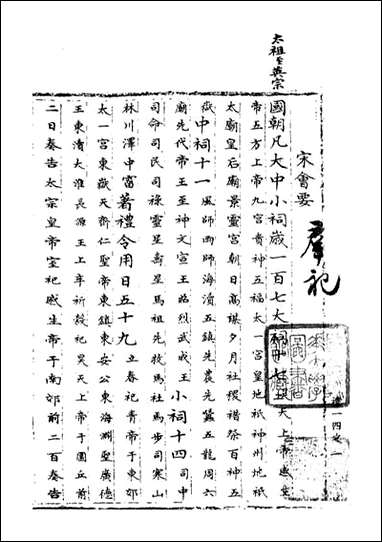 太祖至英宗
宋會要
羣祀
國朝凡大中小祠歲一百七大祠十七昊天上帝感生
帝五方上帝九宮貴神五福太一宮皇地祇神州地祇
太廟皇后廟景靈宮朝日高禖夕月社稷禖祭百神五
嶽中祠十一風師雨師海瀆五鎮先農先蠶五龍周六
廟先代帝王至神文宣王昭烈武成王小祠十四司中
司命司民司祿靈星壽星馬祖先牧馬社馬步司寒山
林川澤中霤著禮令用日五十九立春祀青帝于東郊
太一宮東嶽天齊仁聖帝東鎮東安公東海淵聖廣德
王東瀆大淮長源王上辛祈穀祀昊天上帝于圜丘前
二日奏告太宗皇帝室祀感生帝于南郊前二日奏告